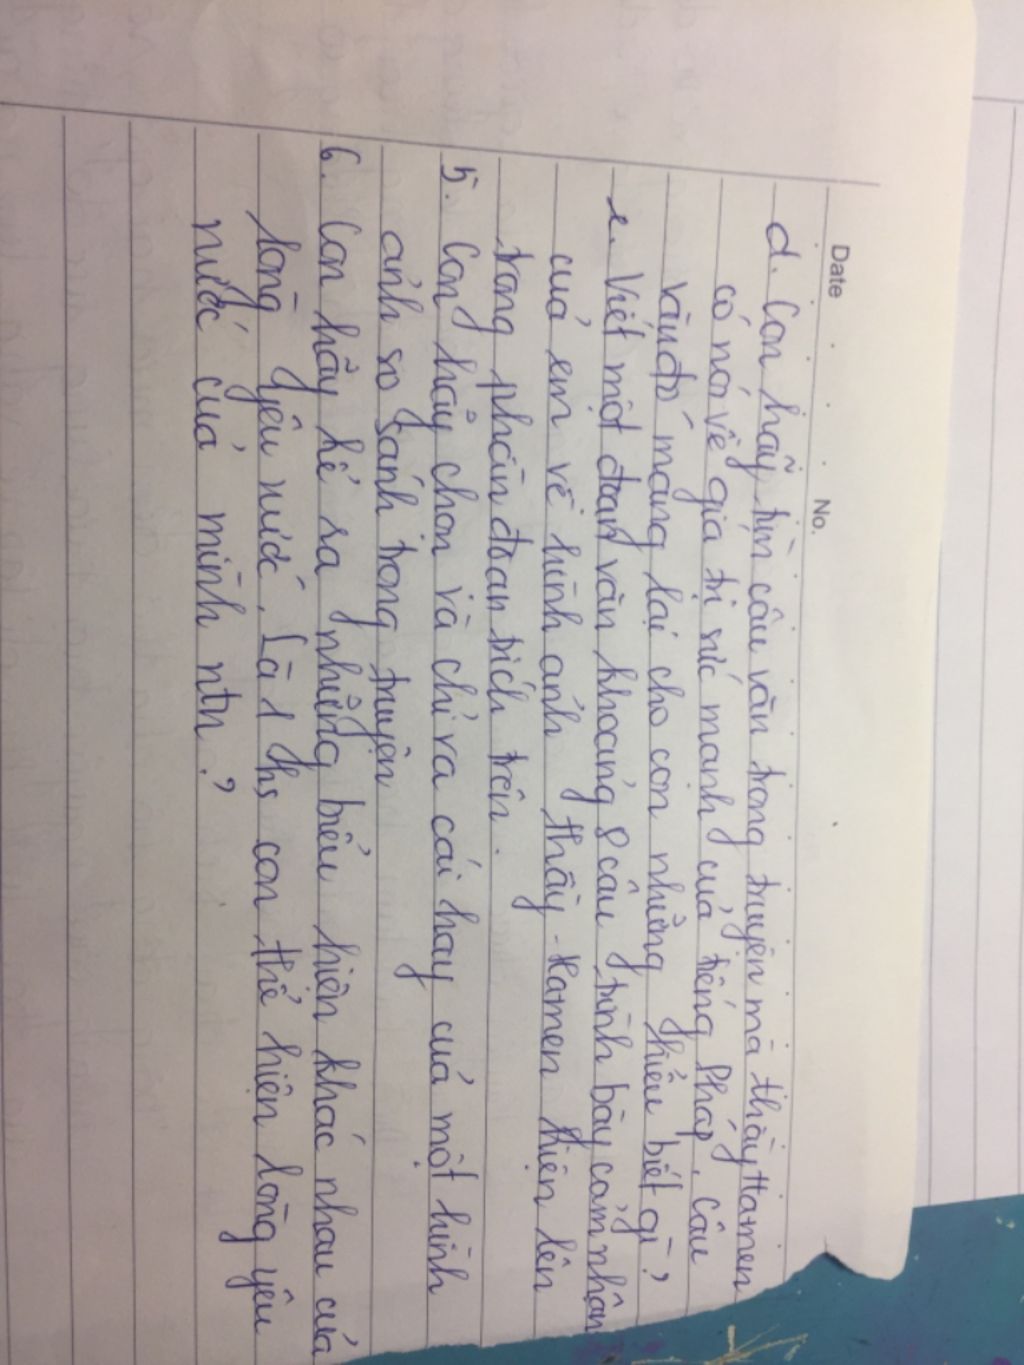 Date No.
d. Con hãy tìm câu văn trong truyện mà thầy Hamen
có nói về giá trị sức mạnh của tiếng Pháp. Câu
văn đó mang lại cho con những hiểu biết gì?
e. Viết một đoạn văn khoảng 8 câu trình bày cảm nhận
của em về hình ảnh thầy Hamen hiện lên
trong phần đoạn trích trên.
5. Con hãy chọn và chỉ ra cái hay của một hình
ảnh so sánh trong truyện
6. Con hãy kể ra những biểu hiện khác nhau của
lòng yêu nước. Là 1 hs con thể hiện lòng yêu
nước của mình ntn?